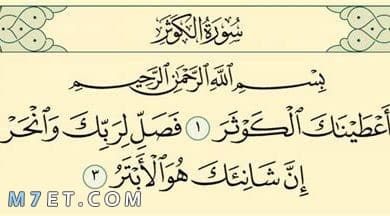 سُورَةُ الكَوْثَرِ
بِسْمِ ٱللَّهِ ٱلرَّحْمَٰنِ ٱلرَّحِيمِ
أَعْطَيْنَٰكَ ٱلْكَوْثَرَ ١ فَصَلِّ لِرَبِّكَ وَٱنْحَرْ
إِنَّ شَانِئَكَ هُوَ ٱلْأَبْتَرُ ٣
M7ET.COM